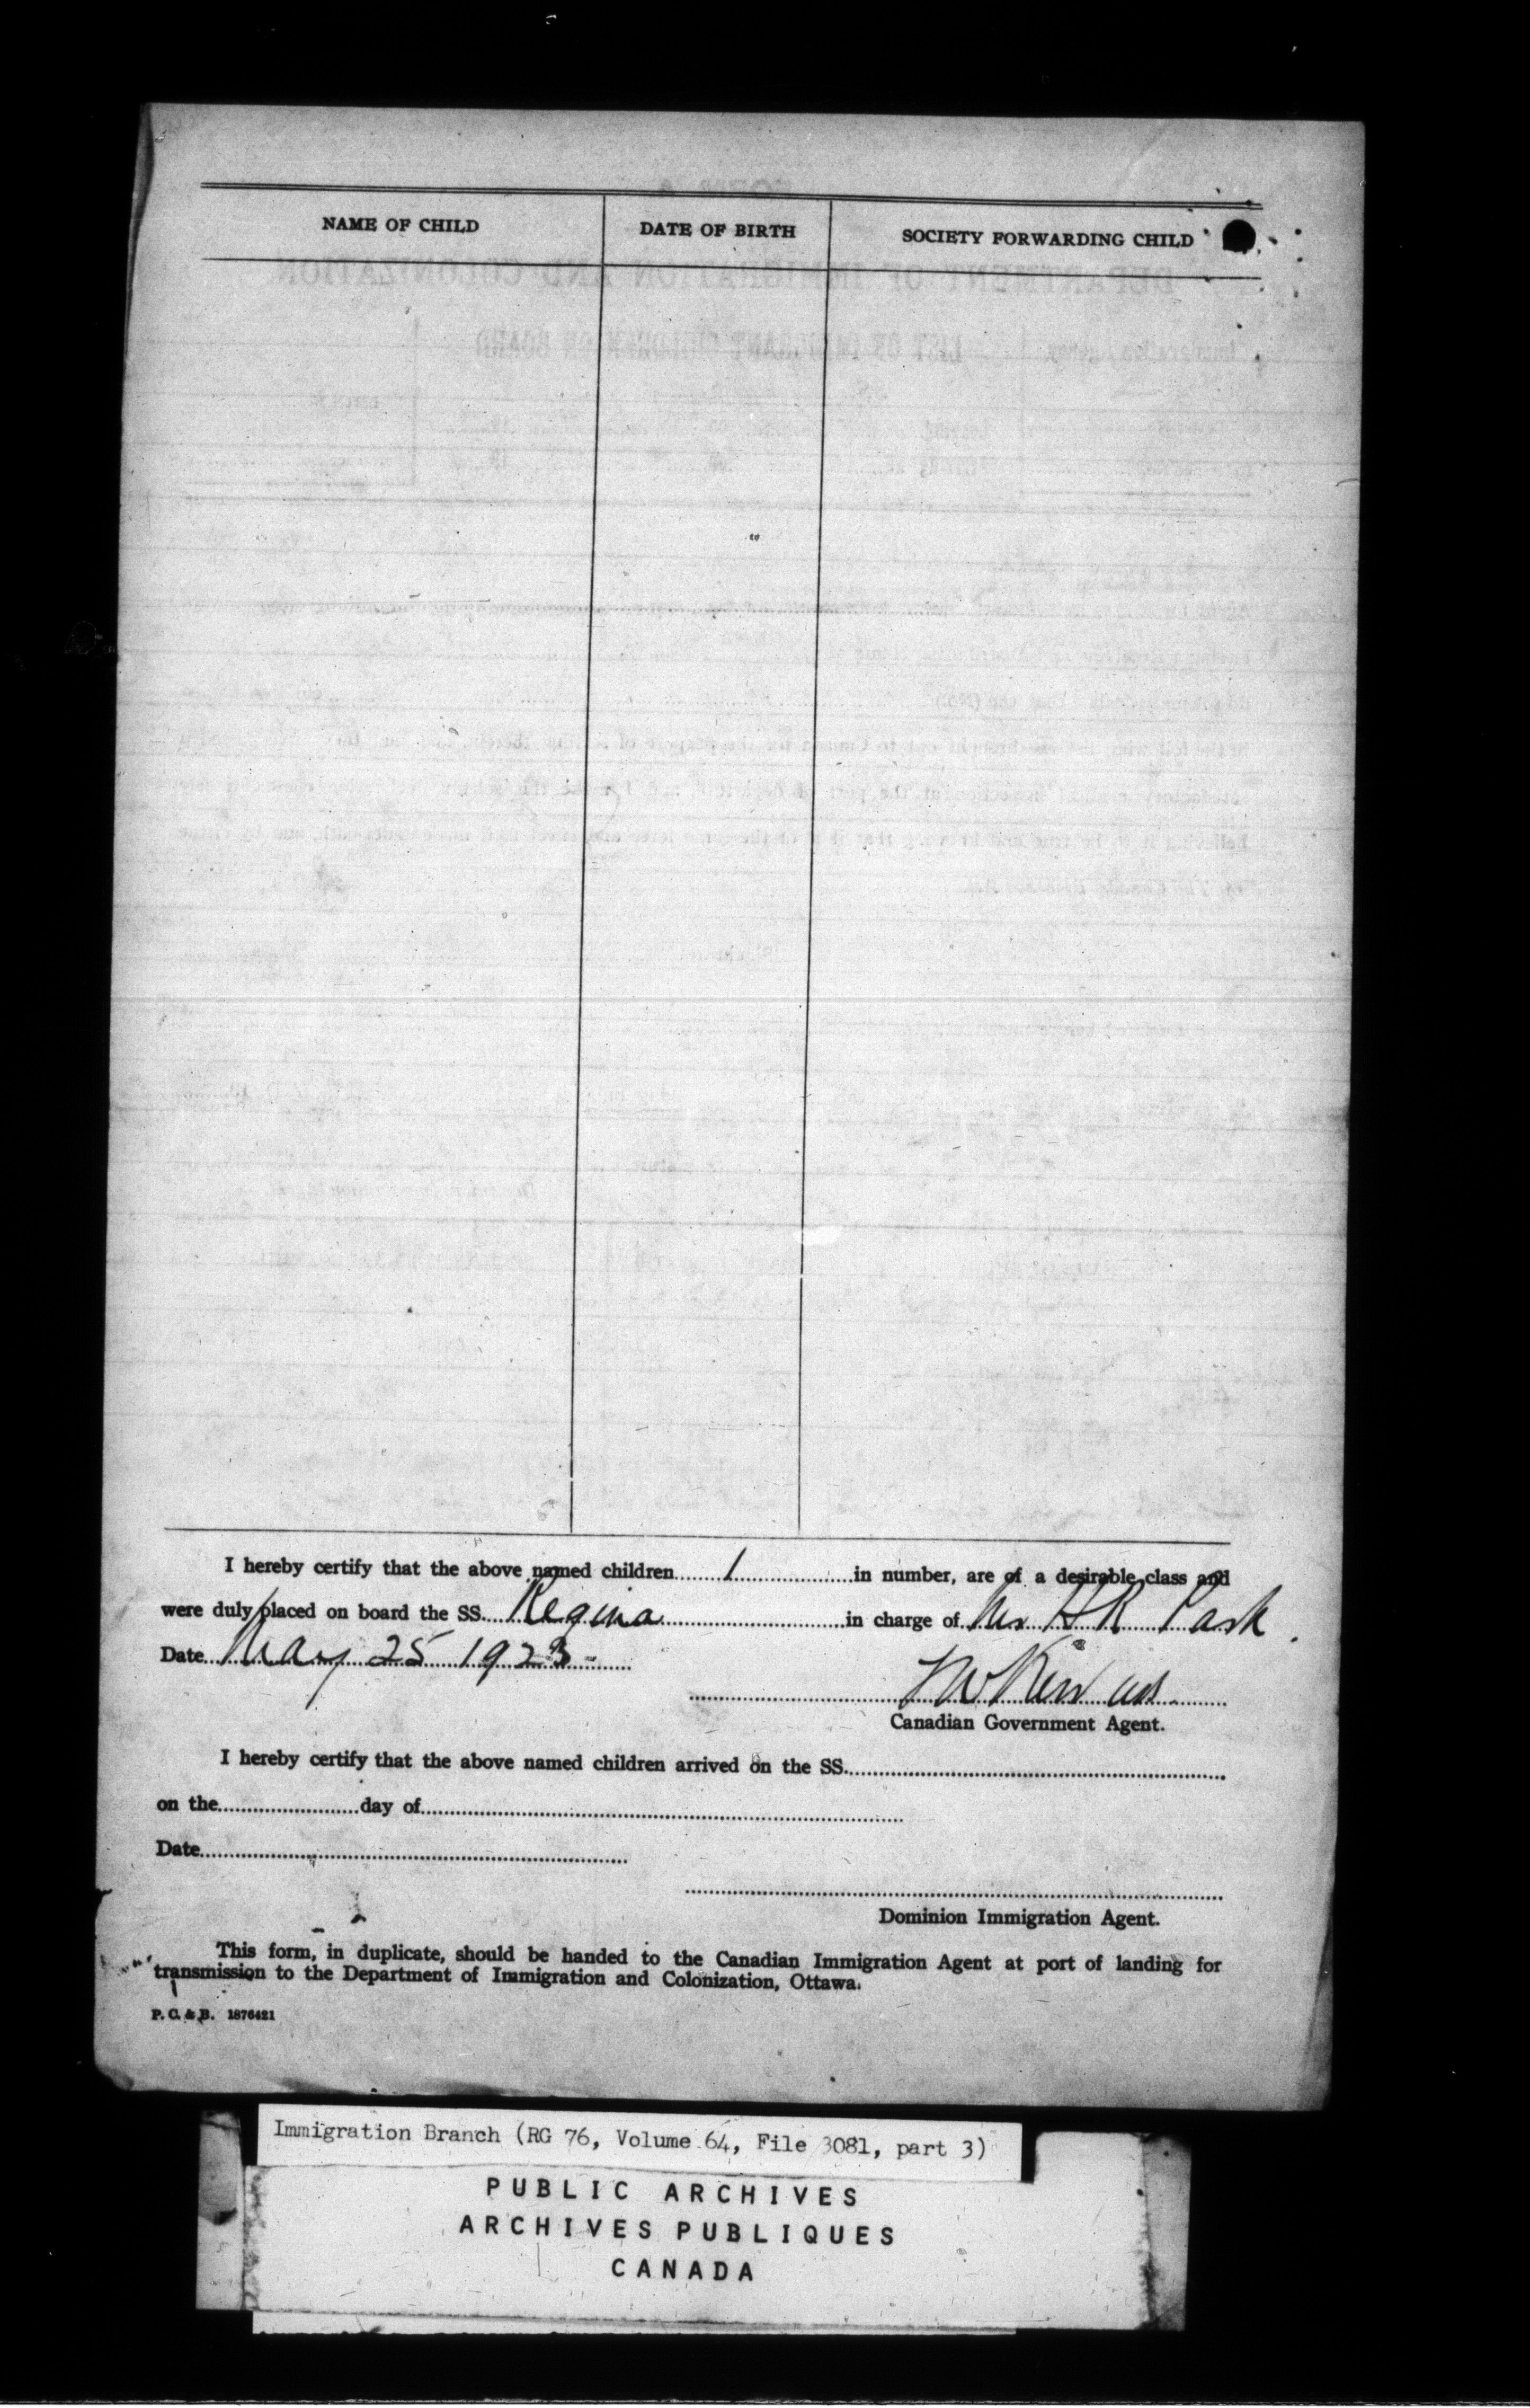 NAME OF CHILD DATE OF BIRTH SOCIETY FORWARDING CHILD
I hereby certify that the above named children 1 in number, are of a desirable class and
were duly placed on board the SS. Regina in charge of H R Pask
Date May 25 1923
Canadian Government Agent.
I hereby certify that the above named children arrived on the SS.
on the day of
Date
Dominion Immigration Agent.
This form, in duplicate, should be handed to the Canadian Immigration Agent at port of landing for
transmission to the Department of Immigration and Colonization, Ottawa.
P. C. & B. 1876421
Immigration Branch (RG 76, Volume 64, File 3081, part 3)
PUBLIC ARCHIVES
ARCHIVES PUBLIQUES
CANADA